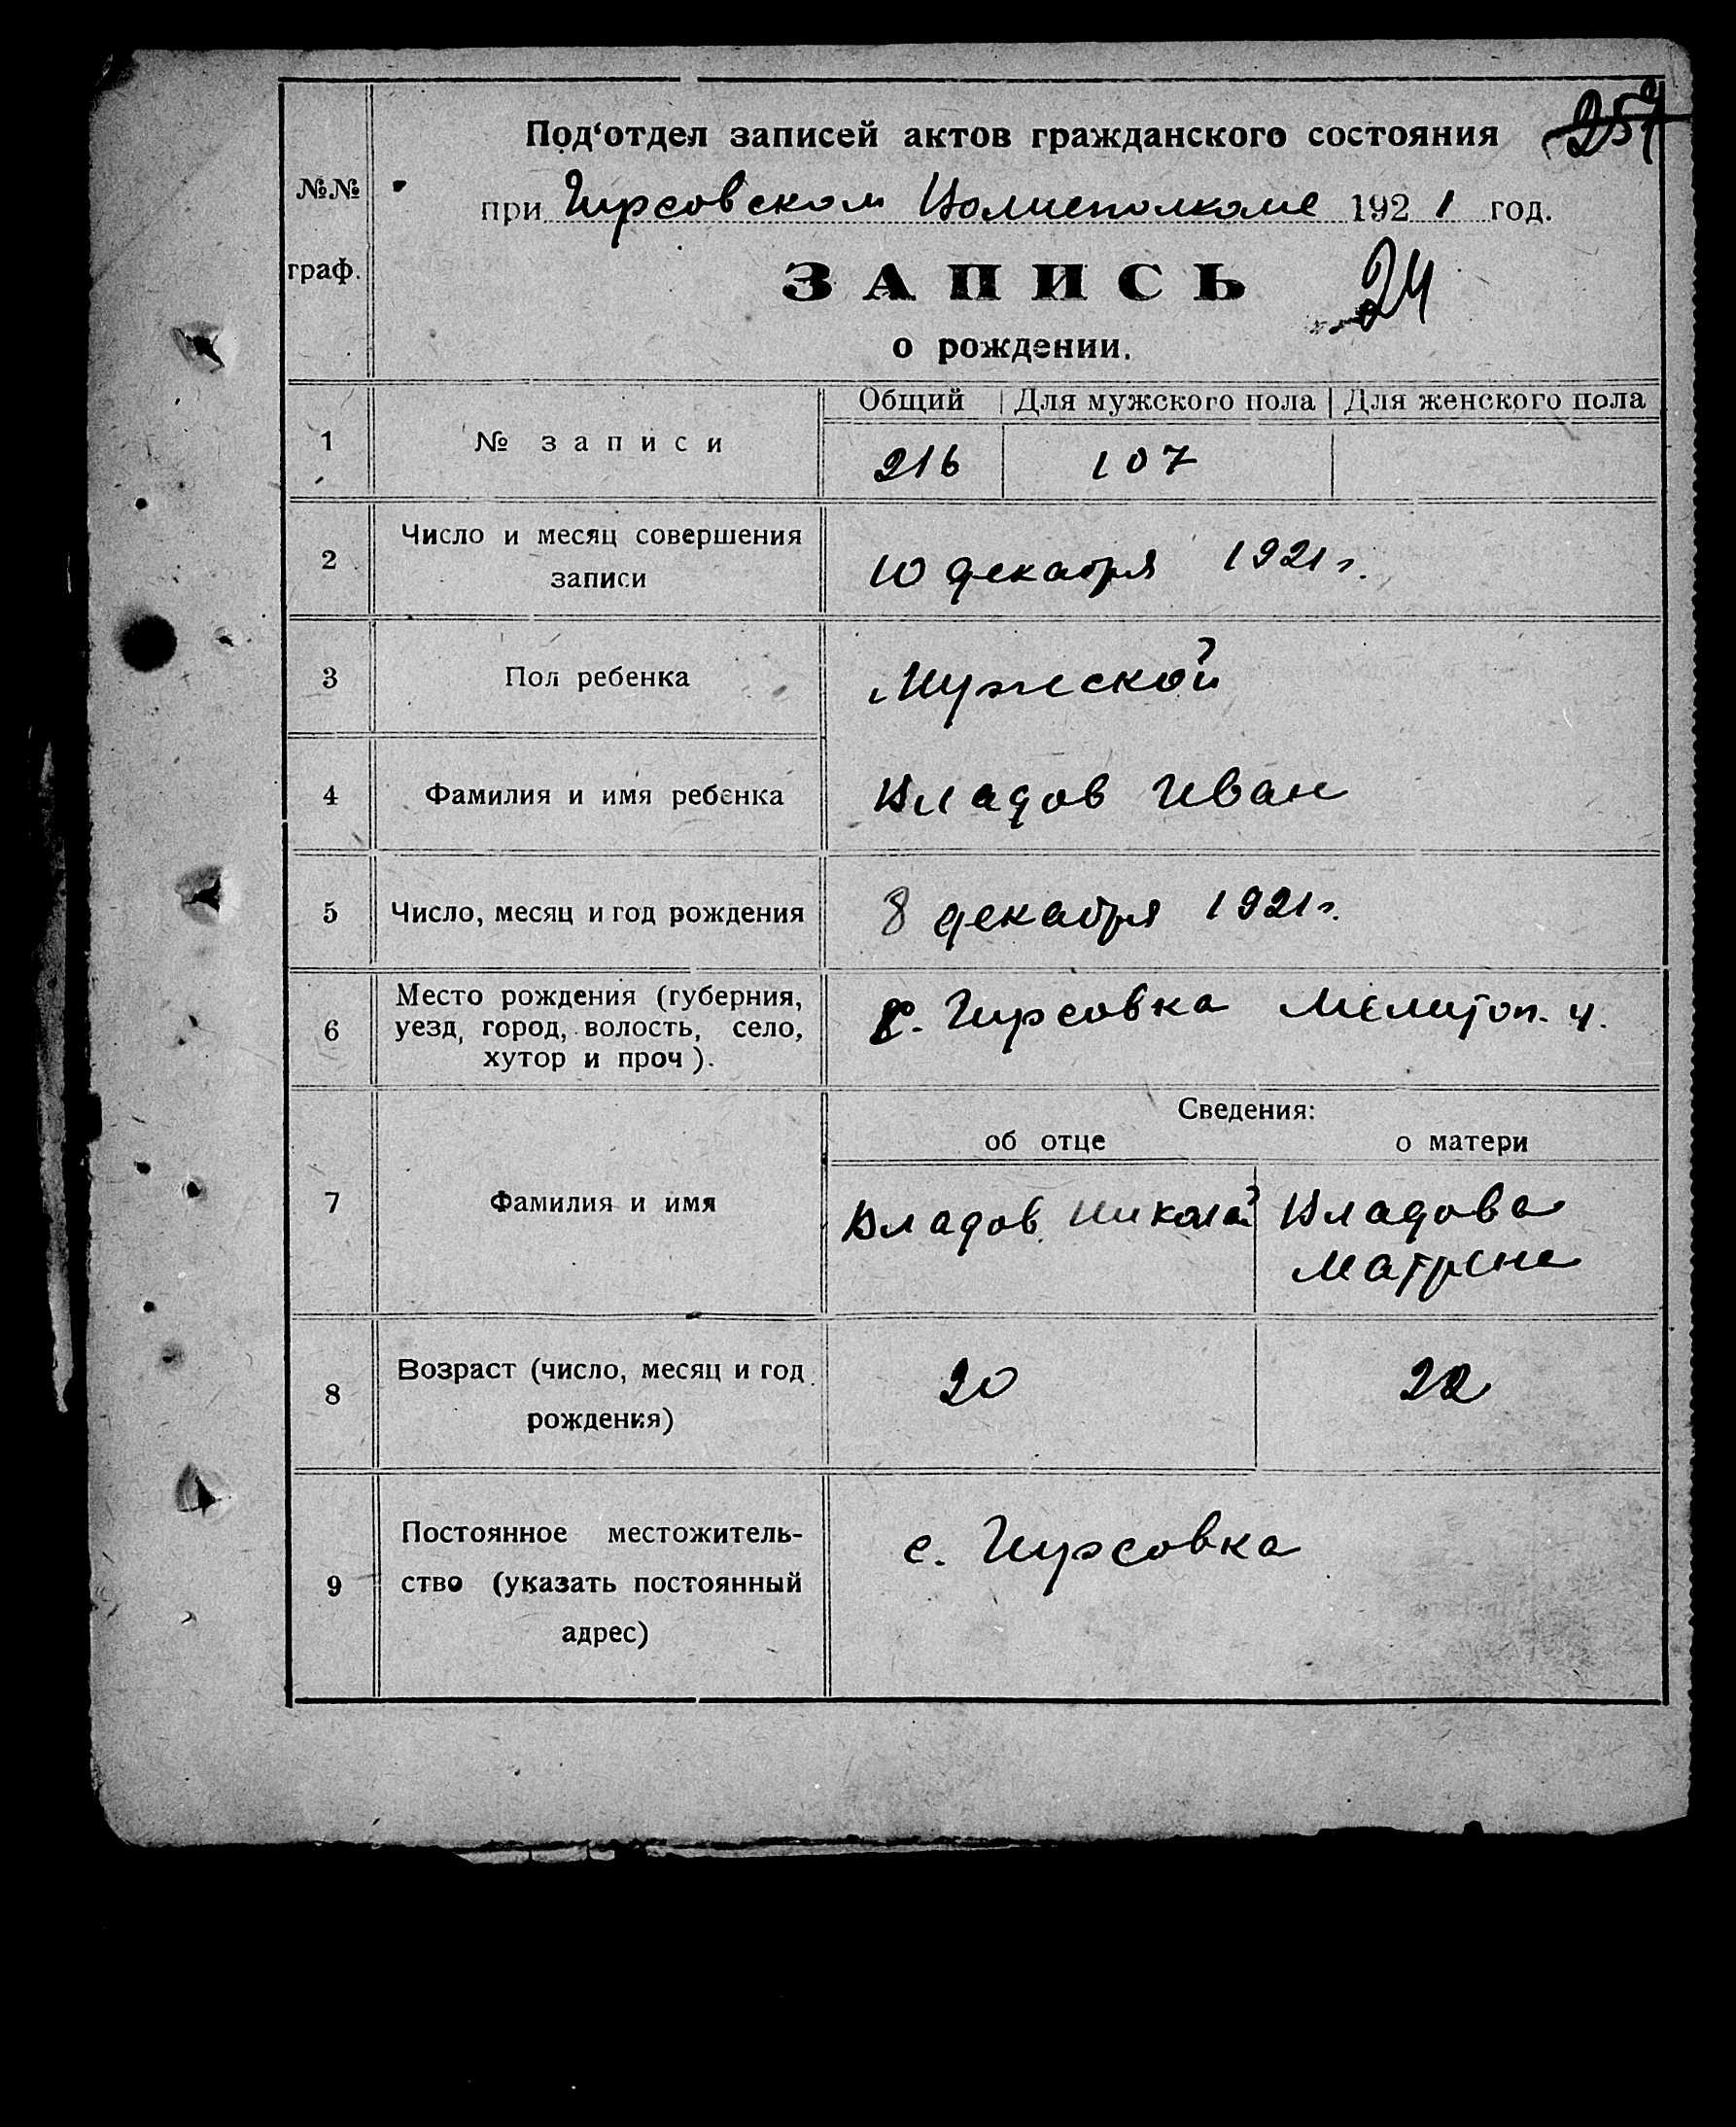 Под‘отдел записей актов гражданского состояния
№№
при Гирсовском Волисполкоме 1921 год.
граф.
ЗАПИСЬ
24
о рождении.
Общий Для мужского пола Для женского пола
1 № записи 216 107
2 Число и месяц совершения
записи
10 декабря 1921 г.
3 Пол ребенка Мужской
4 Фамилия и имя ребенка Владов Иван
5 Число, месяц и год рождения 8 декабря 1921 г.
6 Место рождения (губерния,
уезд, город, волость, село,
хутор и проч).
с. Гирсовка Мелитоп. у.
Сведения:
об отце о матери
7 Фамилия и имя Владов Николай Владова
Матрена
8 Возраст (число, месяц и год
рождения)
20 22
9 Постоянное местожитель-
ство (указать постоянный
адрес)
с. Гирсовка